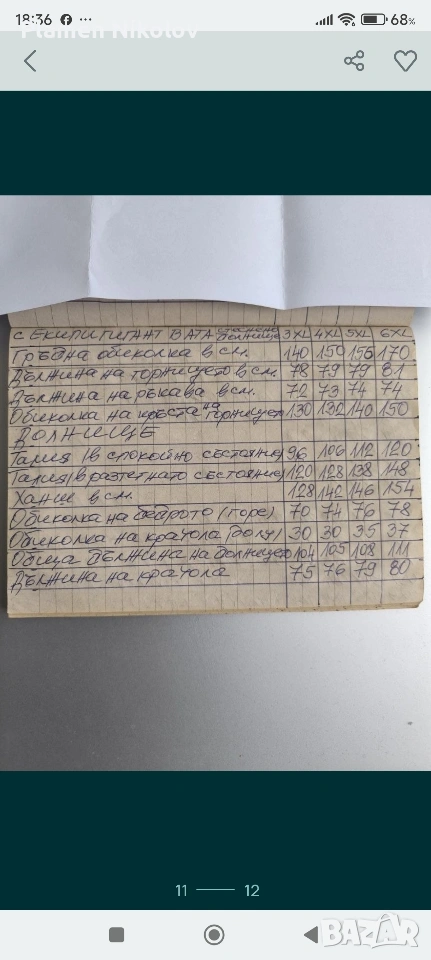 18:36 68%
Plamen Nikolov
С ЕКИП ГИГАНТ ВАТА долнище 3XL 4XL 5XL 6XL
ГРЪДНА обиколка в см. 140 150 156 170
Дължина на горнището в см. 78 79 79 81
Дължина на ръкава в см. 72 73 74 74
Обиколка на кръста на горнището 130 132 140 150
ДОЛНИЩЕ
Талия /в спокойно състояние/ 96 106 112 120
Талия /в разтегнато състояние/ 120 128 138 148
Ханш в см. 128 142 146 154
Обиколка на бедрото (горе) 70 74 76 78
Обиколка на крачола (долу) 30 30 35 37
Обща дължина на долнището 104 105 108 111
Дължина на крачола 75 76 79 80
11 12
BAZAR.bg